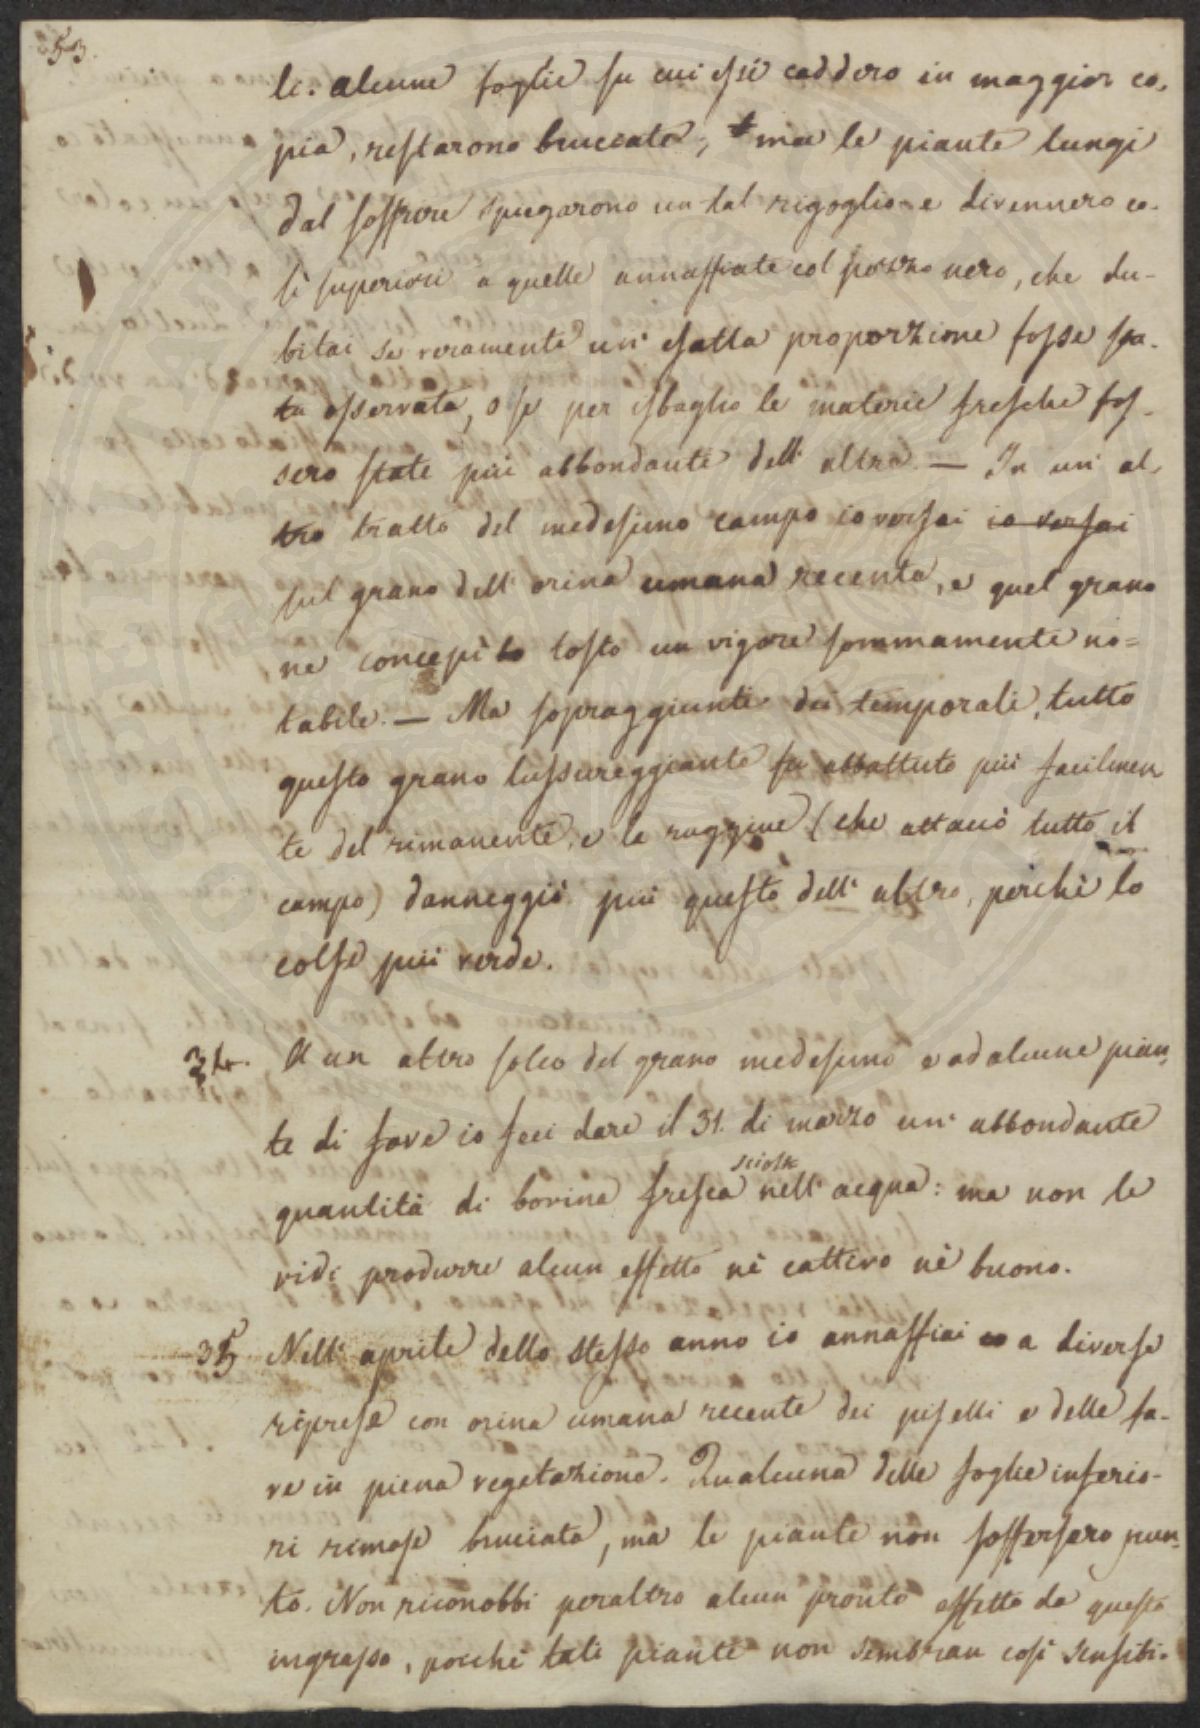 53.
le. alcune foglie su cui essi caddero in maggior co-
pia, restarono bruccate, ma le piante lungi
dal soffrire spiegarono un tal rigoglio e divennero co-
sì superiori a quelle annaffiate col pozzo nero, che du-
bitai se veramente un' esatta proporzione fosse sta-
ta osservata, o se per isbaglio le materie fresche fos-
sero state più abbondanti dell' altre. — In un' al-
tro tratto del medesimo campo io versai io versai
sul grano dell' orina umana recente, e quel grano
ne concepì to tosto un vigore sommamente no=
tabile. — Ma sopraggiunti dei temporali, tutto
questo grano lussureggiante fu abbattuto più facilmen
te del rimanente, e la ruggine (che attaccò tutto il
campo) danneggiò più questo dell' altro, perchè lo
colse più verde.
34. A un altro solco del grano medesimo e ad alcune pian-
te di fave io feci dare il 31. di marzo un' abbondante
sciolta
quantità di bovina fresca nell' acqua: ma non le
vidi produrre alcun effetto nè cattivo nè buono.
35 Nell' aprile dello stesso anno io annaffiai a diverse
riprese con orina umana recente dei piselli e delle fa-
ve in piena vegetazione. Qualcuna delle foglie inferio-
ri rimase bruciata, ma le piante non soffersero pun-
to. Non riconobbi peraltro alcun pronto effetto da questo
ingrasso, poichè tali piante non sembran così sensibi-